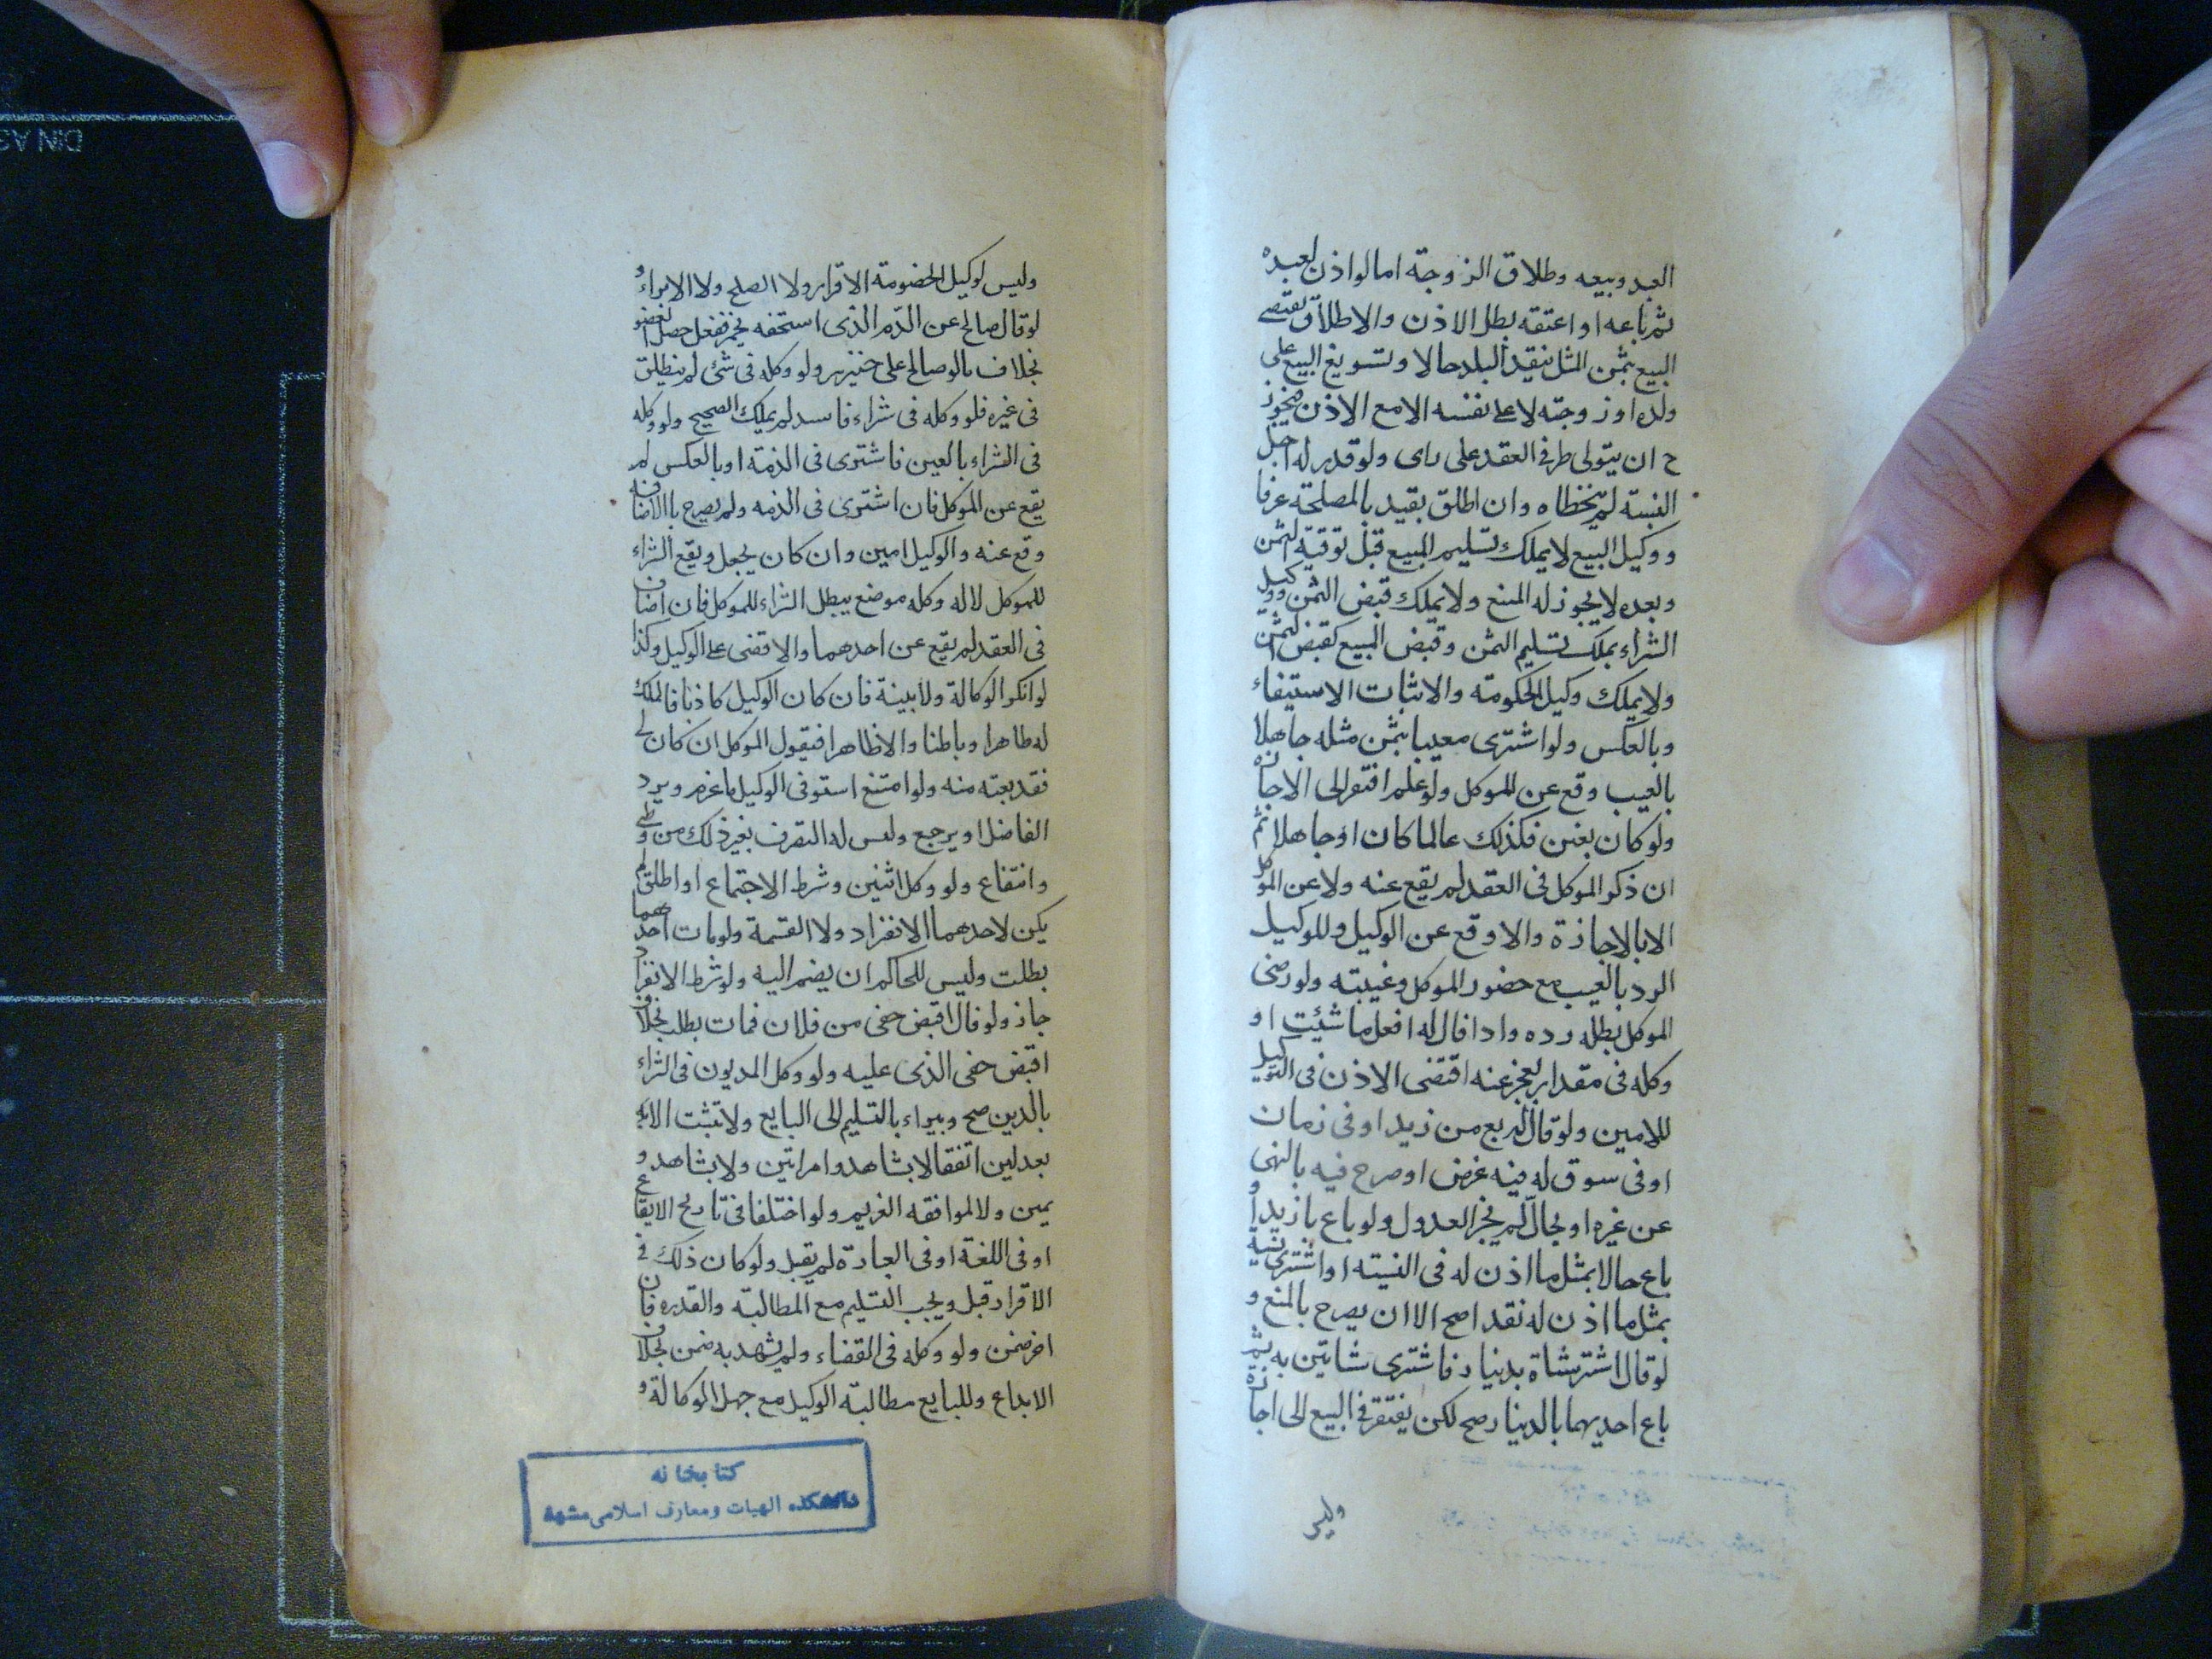 العبد وبيعه وطلاق الزوجة اما لو اذن لعبده
ثم باعه او اعتقه بطل الاذن والاطلاق يقتضى
البيع بثمن المثل بنقد البلد حالا وتسويغ البيع على
ولده او زوجته لا على نفسه الا مع الاذن فيجوز
ح ان يتولى طرفى العقد على راى ولو قدر له اجل
النسية لم يتخطاه وان اطلق يقيد بالمصلحة عرفا
ووكيل البيع لا يملك تسليم المبيع قبل توفية الثمن
وبعده لا يجوز له المنع ولا يملك قبض الثمن ووكيل
الشراء يملك تسليم الثمن وقبض المبيع كقبض الثمن
ولا يملك وكيل الحكومة والاثبات الاستيفاء
وبالعكس ولو اشترى معيبا بثمن مثله جاهلا
بالعيب وقع عن الموكل ولو علم افتقر الى الاجازة
ولو كان بغبن فكذلك عالما كان او جاهلا ثم
ان ذكر الموكل فى العقد لم يقع عنه ولا عن الموكل
الا بالاجازة والا وقع عن الوكيل وللوكيل
الرد بالعيب مع حضور الموكل وغيبته ولو رضى
الموكل بطل رده واذا قال له افعل ما شئت او
وكله فى مقدار يعجز عنه اقتضى الاذن فى التوكيل
للامين ولو قال له بع من زيد او فى زمان
او فى سوق له فيه غرض او صرح فيه بالنهى
عن غيره او بحال لم يجز العدول ولو باع بازيد او
باع حالا بمثل ما اذن له فى النسيته او اشترى نسية
بمثل ما اذن له نقدا صح الا ان يصرح بالمنع و
لو قال اشتر شاة بدينار فاشترى شاتين به ثم
باع احديهما بالدينار صح لكن يفتقر فى البيع الى اجازة
وليس
وليس لوكيل الخصومة الاقرار ولا الصلح ولا الابراء و
لو قال صالح عن الدم الذى استحقه بخمر ففعل حصل العفو
بخلاف ما لو صالح على خنزير ولو وكله فى شئ لم ينطلق
فى غيره فلو وكله فى شراء فاسد لم يملك الصحيح ولو وكله
فى الشراء بالعين فاشترى فى الذمة او بالعكس لم
يقع عن الموكل فان اشترى فى الذمه ولم يصرح بالاضافه
وقع عنه والوكيل امين وان كان بجعل ويقع الشراء
للموكل لا له وكله موضع يبطل الشراء للموكل فان اضاف
فى العقد لم يقع عن احدهما والا قضى على الوكيل وكذا
لو انكر الوكالة ولا بينة فان كان الوكيل كاذبا فالملك
له ظاهرا وباطنا والا ظاهرا فيقول الموكل ان كان لى
فقد بعته منه ولو امتنع استوفى الوكيل ما غرم ويرد
الفاضل او يرجع وليس له التصرف بغير ذلك من وطى
وانتفاع ولو وكل اثنين وشرط الاجتماع او اطلق لم
يكن لاحدهما الانفراد ولا القسمة ولو مات احدهما
بطلت وليس للحاكم ان يضم اليه ولو شرط الانفراد
جاز ولو قال اقبض حقى من فلان فمات بطلت بخلاف
اقبض حقى الذى عليه ولو وكل المديون فى الشراء
بالدين صح ويبراء بالتسليم الى البايع ولا تثبت الا
بعدلين اتفقا لا بشاهد وامراتين ولا بشاهد و
يمين ولا لموافقه الغريم ولو اختلفا فى تاريخ الايقاع
او فى اللغة او فى العبارة لم يقبل ولو كان ذلك فى
الاقرار قبل ويجب التسليم مع المطالبة والقدره فان
اخر ضمن ولو وكله فى القضاء ولم يشهد به ضمن بخلاف
الايداع وللبايع مطالبة الوكيل مع جهل الوكالة و
كتابخانه
دانشکده الهیات ومعارف اسلامی مشهد